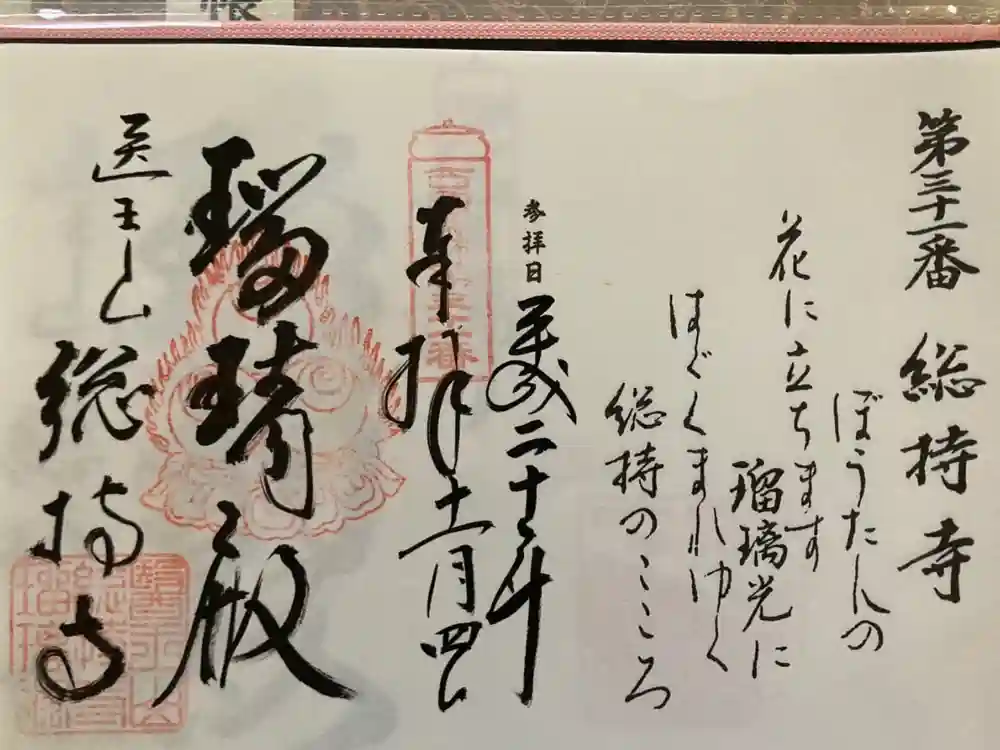 第三十一番 総持寺
ぼうたんの
花に立ちます
瑠璃光に
はぐくまれゆく
総持のこころ
参拝日 平成二十年
奉拝 十一月四日
瑠璃殿
医王山 総持寺